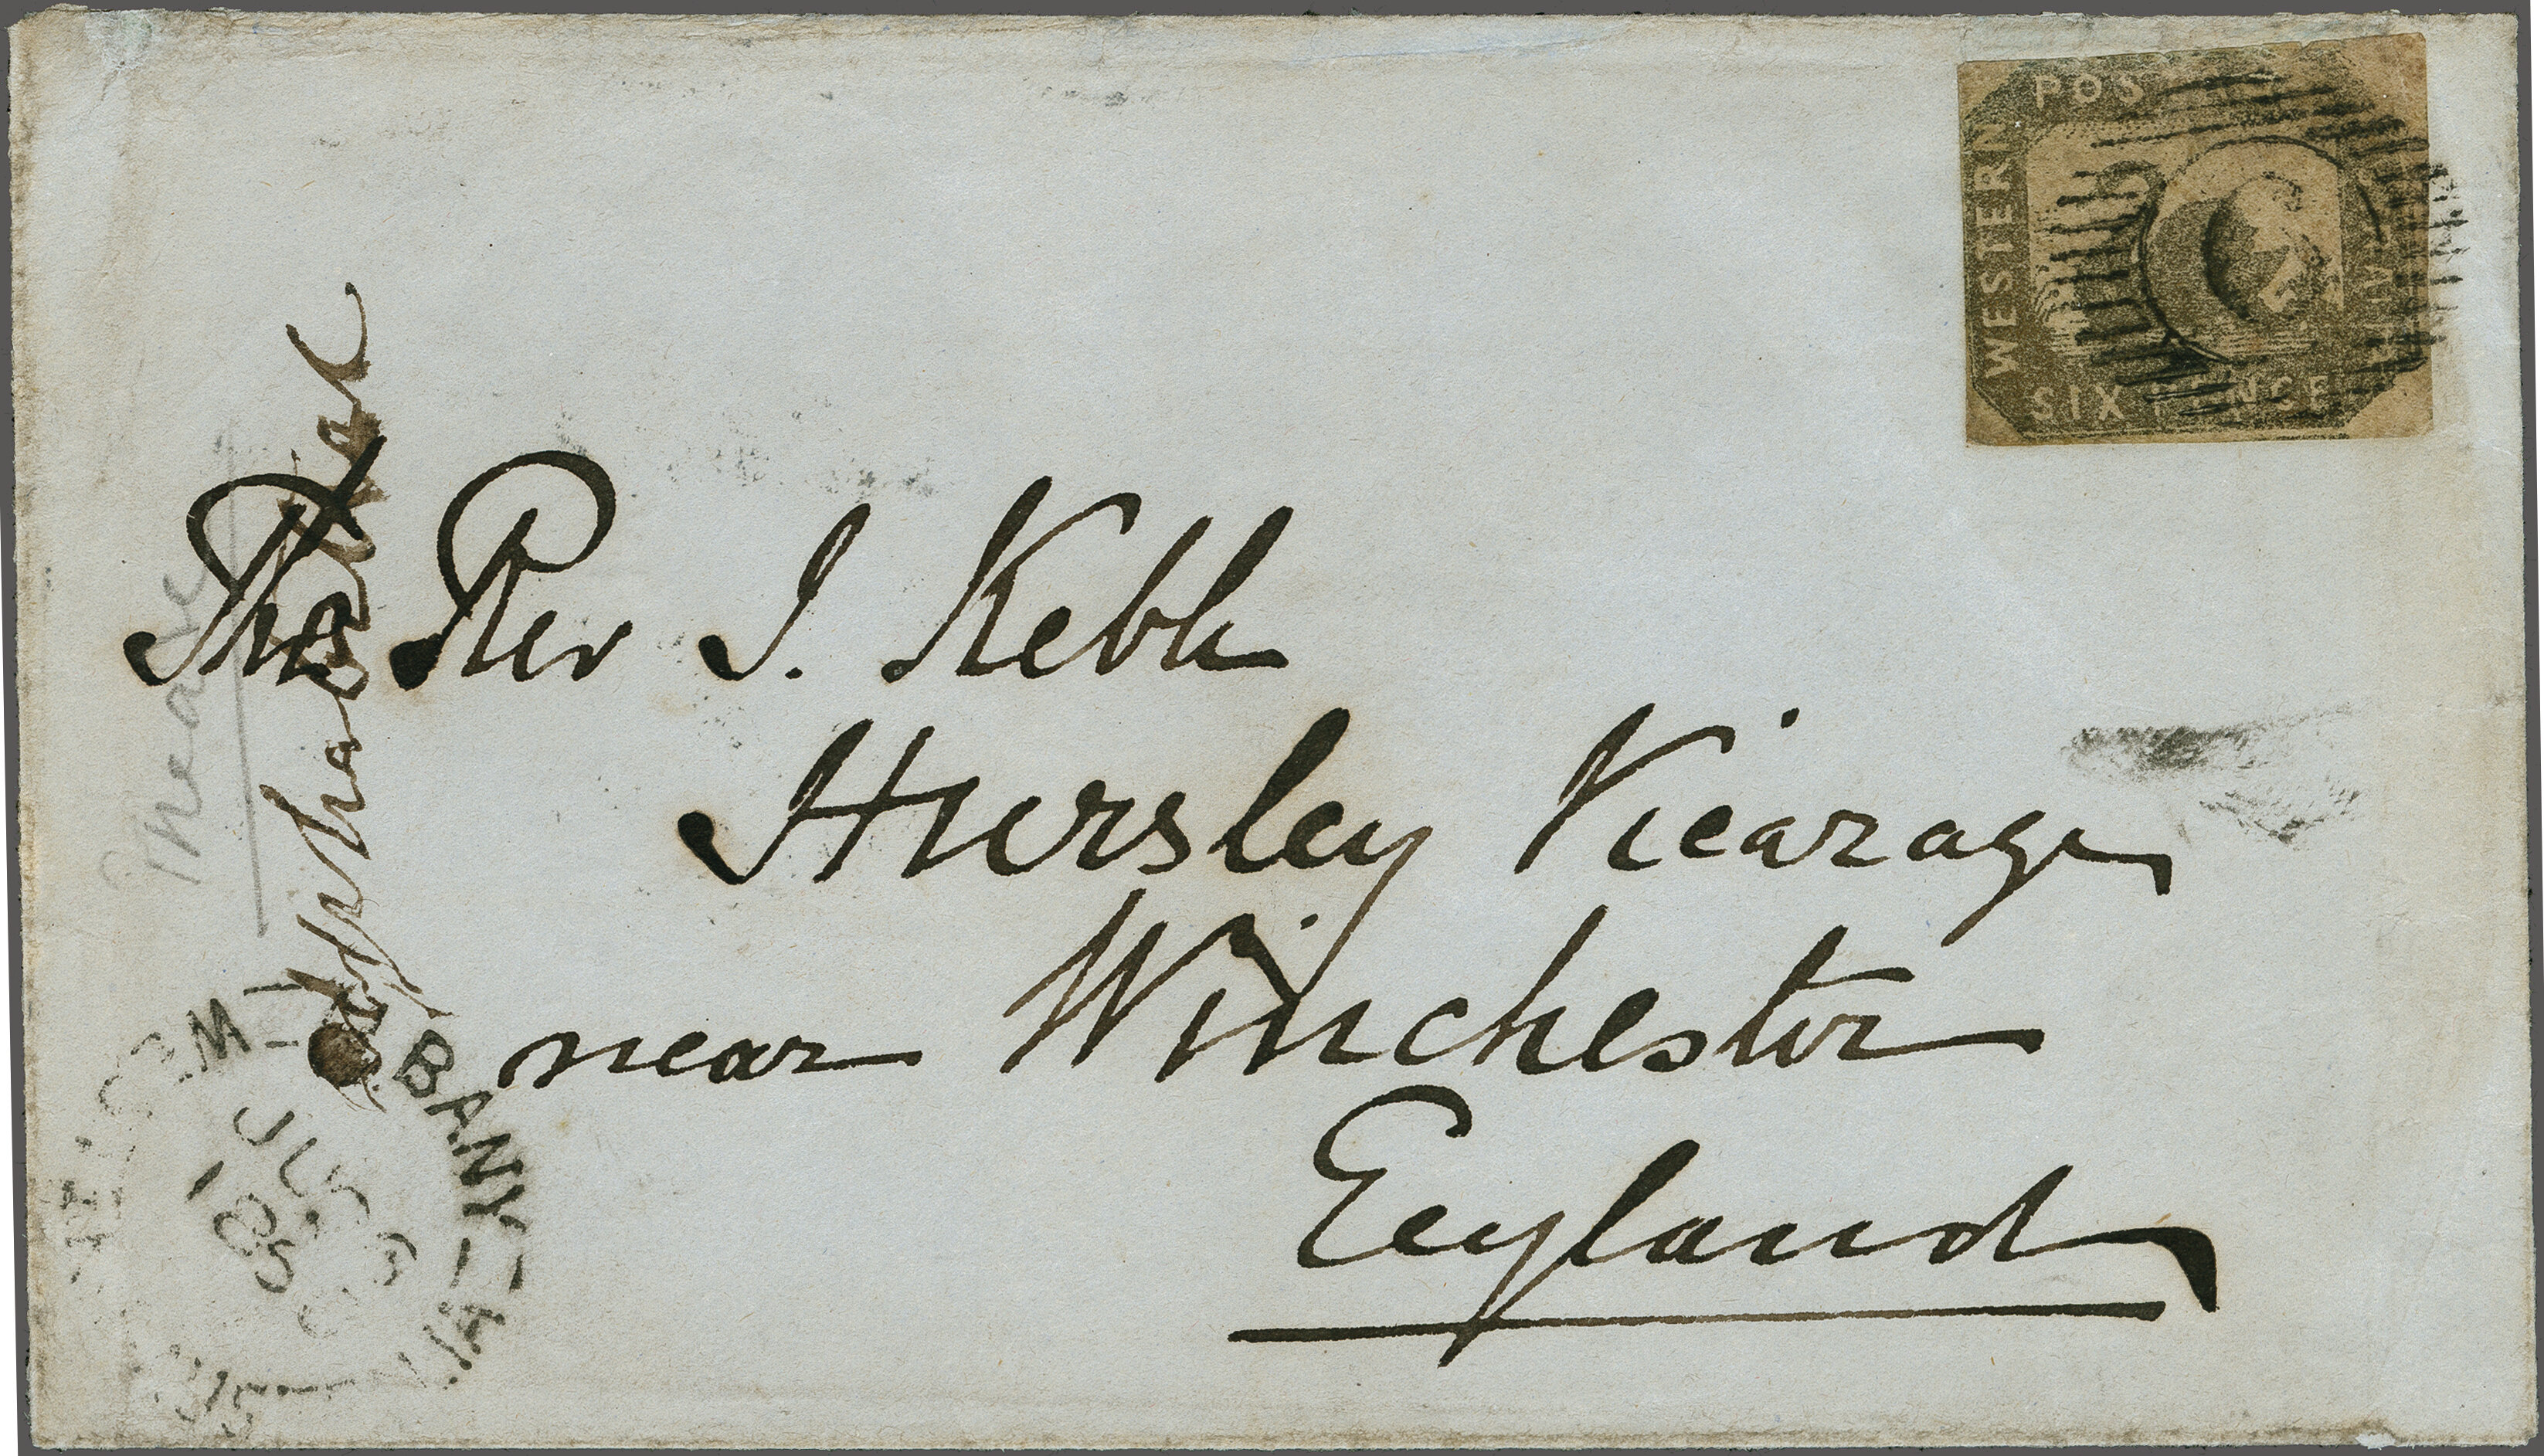 POS
WESTERN
SIX PENCE
The Rev J. Keble
Hursley Vicarage
near Winchester
England
BANY
JU
185
LIA